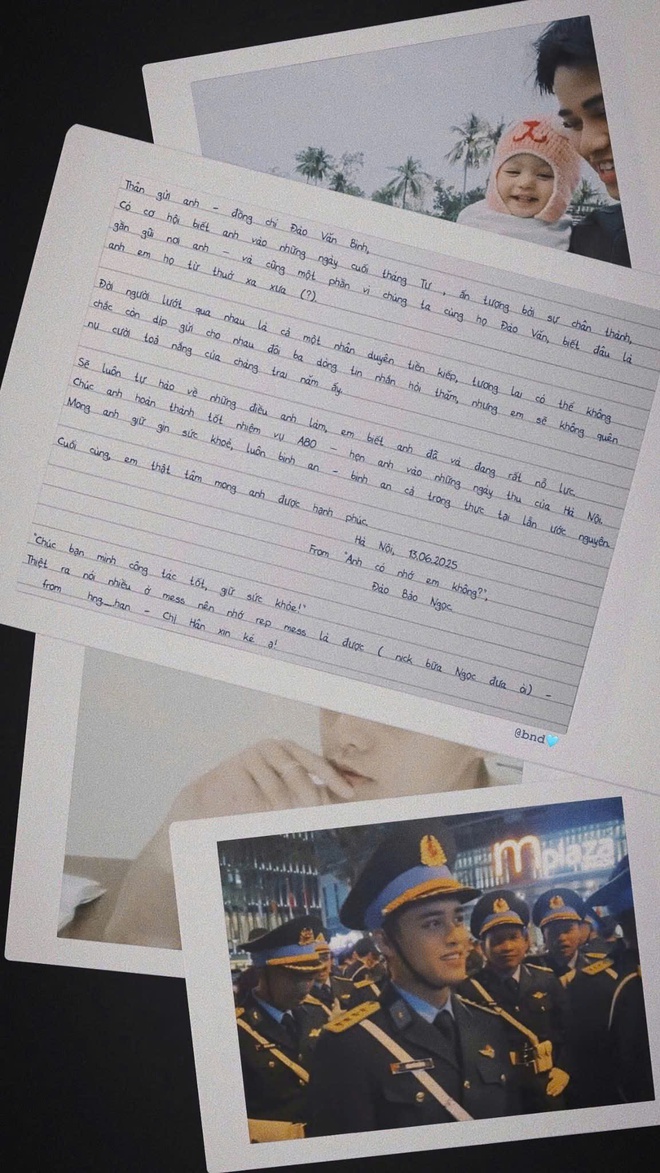 Thân gửi anh - đồng chí Đào Văn Bình,
Có cơ hội biết anh vào những ngày cuối tháng Tư, ấn tượng bởi sự chân thành,
gần gũi nơi anh - và cũng một phần vì chúng ta cùng họ Đào Văn, biết đâu là
anh em họ từ thuở xa xưa (?)
Đời người lướt qua nhau là cả một nhân duyên tiền kiếp, tương lai có thể không
chắc còn dịp gửi cho nhau đôi ba dòng tin nhắn hỏi thăm, nhưng em sẽ không quên
nụ cười toả nắng của chàng trai năm ấy.
Sẽ luôn tự hào về những điều anh làm, em biết anh đã và đang rất nỗ lực.
Chúc anh hoàn thành tốt nhiệm vụ A80 - hẹn anh vào những ngày thu của Hà Nội.
Mong anh giữ gìn sức khoẻ, luôn bình an - bình an cả trong thực tại lẫn ước nguyện.
Cuối cùng, em thật tâm mong anh được hạnh phúc.
Hà Nội, 13.06.2025
From "Anh có nhớ em không?",
Đào Bảo Ngọc
"Chúc bạn mình công tác tốt, giữ sức khỏe!"
Thiệt ra nói nhiều ở mess nên nhớ rep mess là được ( nick bữa Ngọc đưa ời) -
from hng_han - Chị Hân xin ké ạ!
@bnd🩵
mplaza